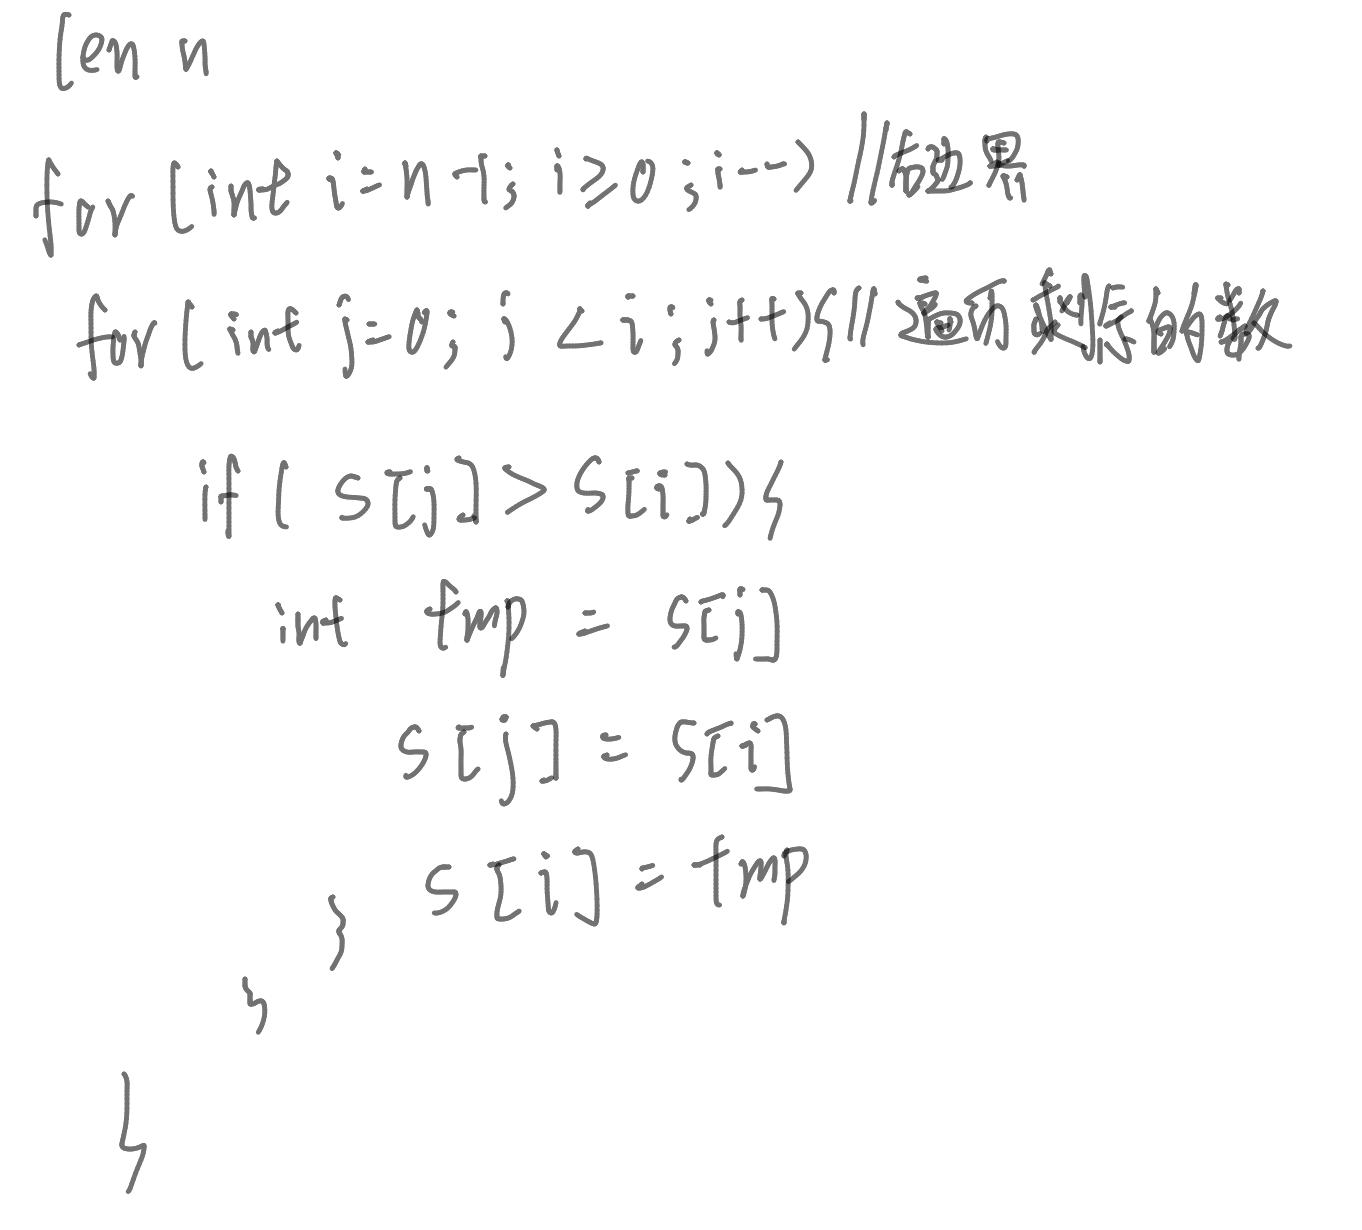 len n
for (int i=n-1; i≥0; i--) //右边界
for( int j=0; j < i; j++){// 遍历剩余的数
if( s[j]>s[i]){
int tmp = s[j]
s[j] = s[i]
s[i] = tmp
}
}
}